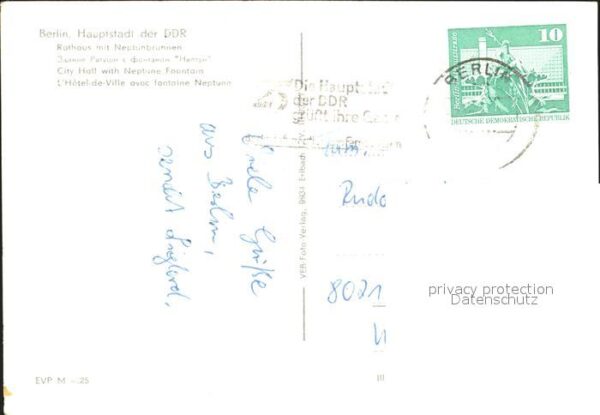 Berlin, Hauptstadt der DDR
Rathaus mit Neptunbrunnen
Здание Ратуши с фонтаном "Нептун"
City Hall with Neptune Fountain
L'Hôtel-de-Ville avec fontaine Neptune
10
DEUTSCHE DEMOKRATISCHE REPUBLIK
BERLIN
Die Hauptstadt
der DDR
grüßt ihre
Viele Grüße
aus Berlin,
sendet
VEB Foto-Verlag, 9934 Erlbach
Rudo
8021
privacy protection
Datenschutz
EVP M -.25
III